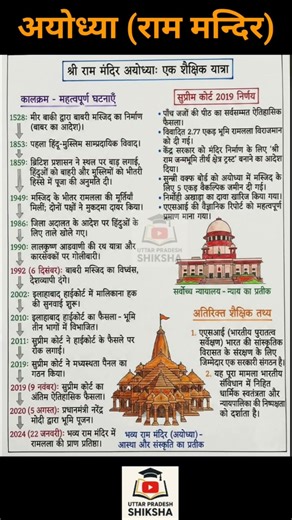 अयोध्या (राम मन्दिर)
श्री राम मंदिर अयोध्याः एक शैक्षिक यात्रा
कालक्रम - महत्वपूर्ण घटनाएँ
1528: मीर बाकी द्वारा बाबरी मस्जिद का निर्माण
(बाबर का आदेश)।
1853: पहला हिंदू-मुस्लिम साम्प्रदायिक विवाद।
1859: ब्रिटिश प्रशासन ने स्थल पर बाड़ लगाई,
हिंदुओं को बाहरी और मुस्लिमों को भीतरी
हिस्से में पूजा की अनुमति दी।
1949: मस्जिद के भीतर रामलला की मूर्तियाँ
मिलीं; दोनों पक्षों ने मुकदमा दायर किया।
1986: जिला अदालत के आदेश पर हिंदुओं के
लिए ताले खोले गए।
1990: लालकृष्ण आडवाणी की रथ यात्रा और
कारसेवकों पर गोलीबारी।
1992 (6 दिसंबर): बाबरी मस्जिद का विध्वंस,
देशव्यापी दंगे।
2002: इलाहाबाद हाईकोर्ट में मालिकाना हक
की सुनवाई शुरू।
2010: इलाहाबाद हाईकोर्ट का फैसला - भूमि
तीन भागों में विभाजित।
2011: सुप्रीम कोर्ट ने हाईकोर्ट के फैसले पर
रोक लगाई।
2019: सुप्रीम कोर्ट ने मध्यस्थता पैनल का
गठन किया।
2019 (9 नवंबर): सुप्रीम कोर्ट का
अंतिम ऐतिहासिक फैसला।
2020 (5 अगस्त): प्रधानमंत्री नरेंद्र
मोदी द्वारा भूमि पूजन।
2024 (22 जनवरी): भव्य राम मंदिर में
रामलला की प्राण प्रतिष्ठा।
सुप्रीम कोर्ट 2019 निर्णय
पाँच जजों की पीठ का सर्वसम्मत ऐतिहासिक
फैसला।
विवादित 2.77 एकड़ भूमि रामलला विराजमान
को दी गई।
केंद्र सरकार को मंदिर निर्माण के लिए 'श्री
राम जन्मभूमि तीर्थ क्षेत्र ट्रस्ट' बनाने का आदेश
दिया।
सुन्नी वक्फ बोर्ड को अयोध्या में मस्जिद के
लिए 5 एकड़ वैकल्पिक जमीन दी गई।
निर्मोही अखाड़ा का दावा खारिज किया गया।
एएसआई की वैज्ञानिक रिपोर्ट को महत्वपूर्ण
प्रमाण माना गया।
UTTAR PRADESH
SHIKSHA
सर्वोच्च न्यायालय - न्याय का प्रतीक
अतिरिक्त शैक्षिक तथ्य
1. एएसआई (भारतीय पुरातत्व
सर्वेक्षण) भारत की सांस्कृतिक
विरासत के संरक्षण के लिए
जिम्मेदार एक सरकारी संगठन है।
2. यह पूरा मामला भारतीय
संविधान में निहित
धार्मिक स्वतंत्रता और
न्यायपालिका की निष्पक्षता
को दर्शाता है।
भव्य राम मंदिर (अयोध्या) -
आस्था और संस्कृति का प्रतीक
UTTAR PRADESH
SHIKSHA